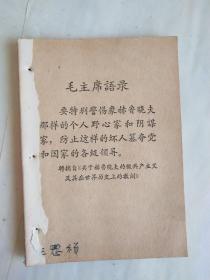 毛主席語录
要特别警惕象赫鲁晓夫
那样的个人野心家和阴谋
家，防止这样的坏人篡夺党
和国家的各级领导。
轉摘自《关于赫鲁晓夫的假共产主义
及其在世界历史上的教訓》